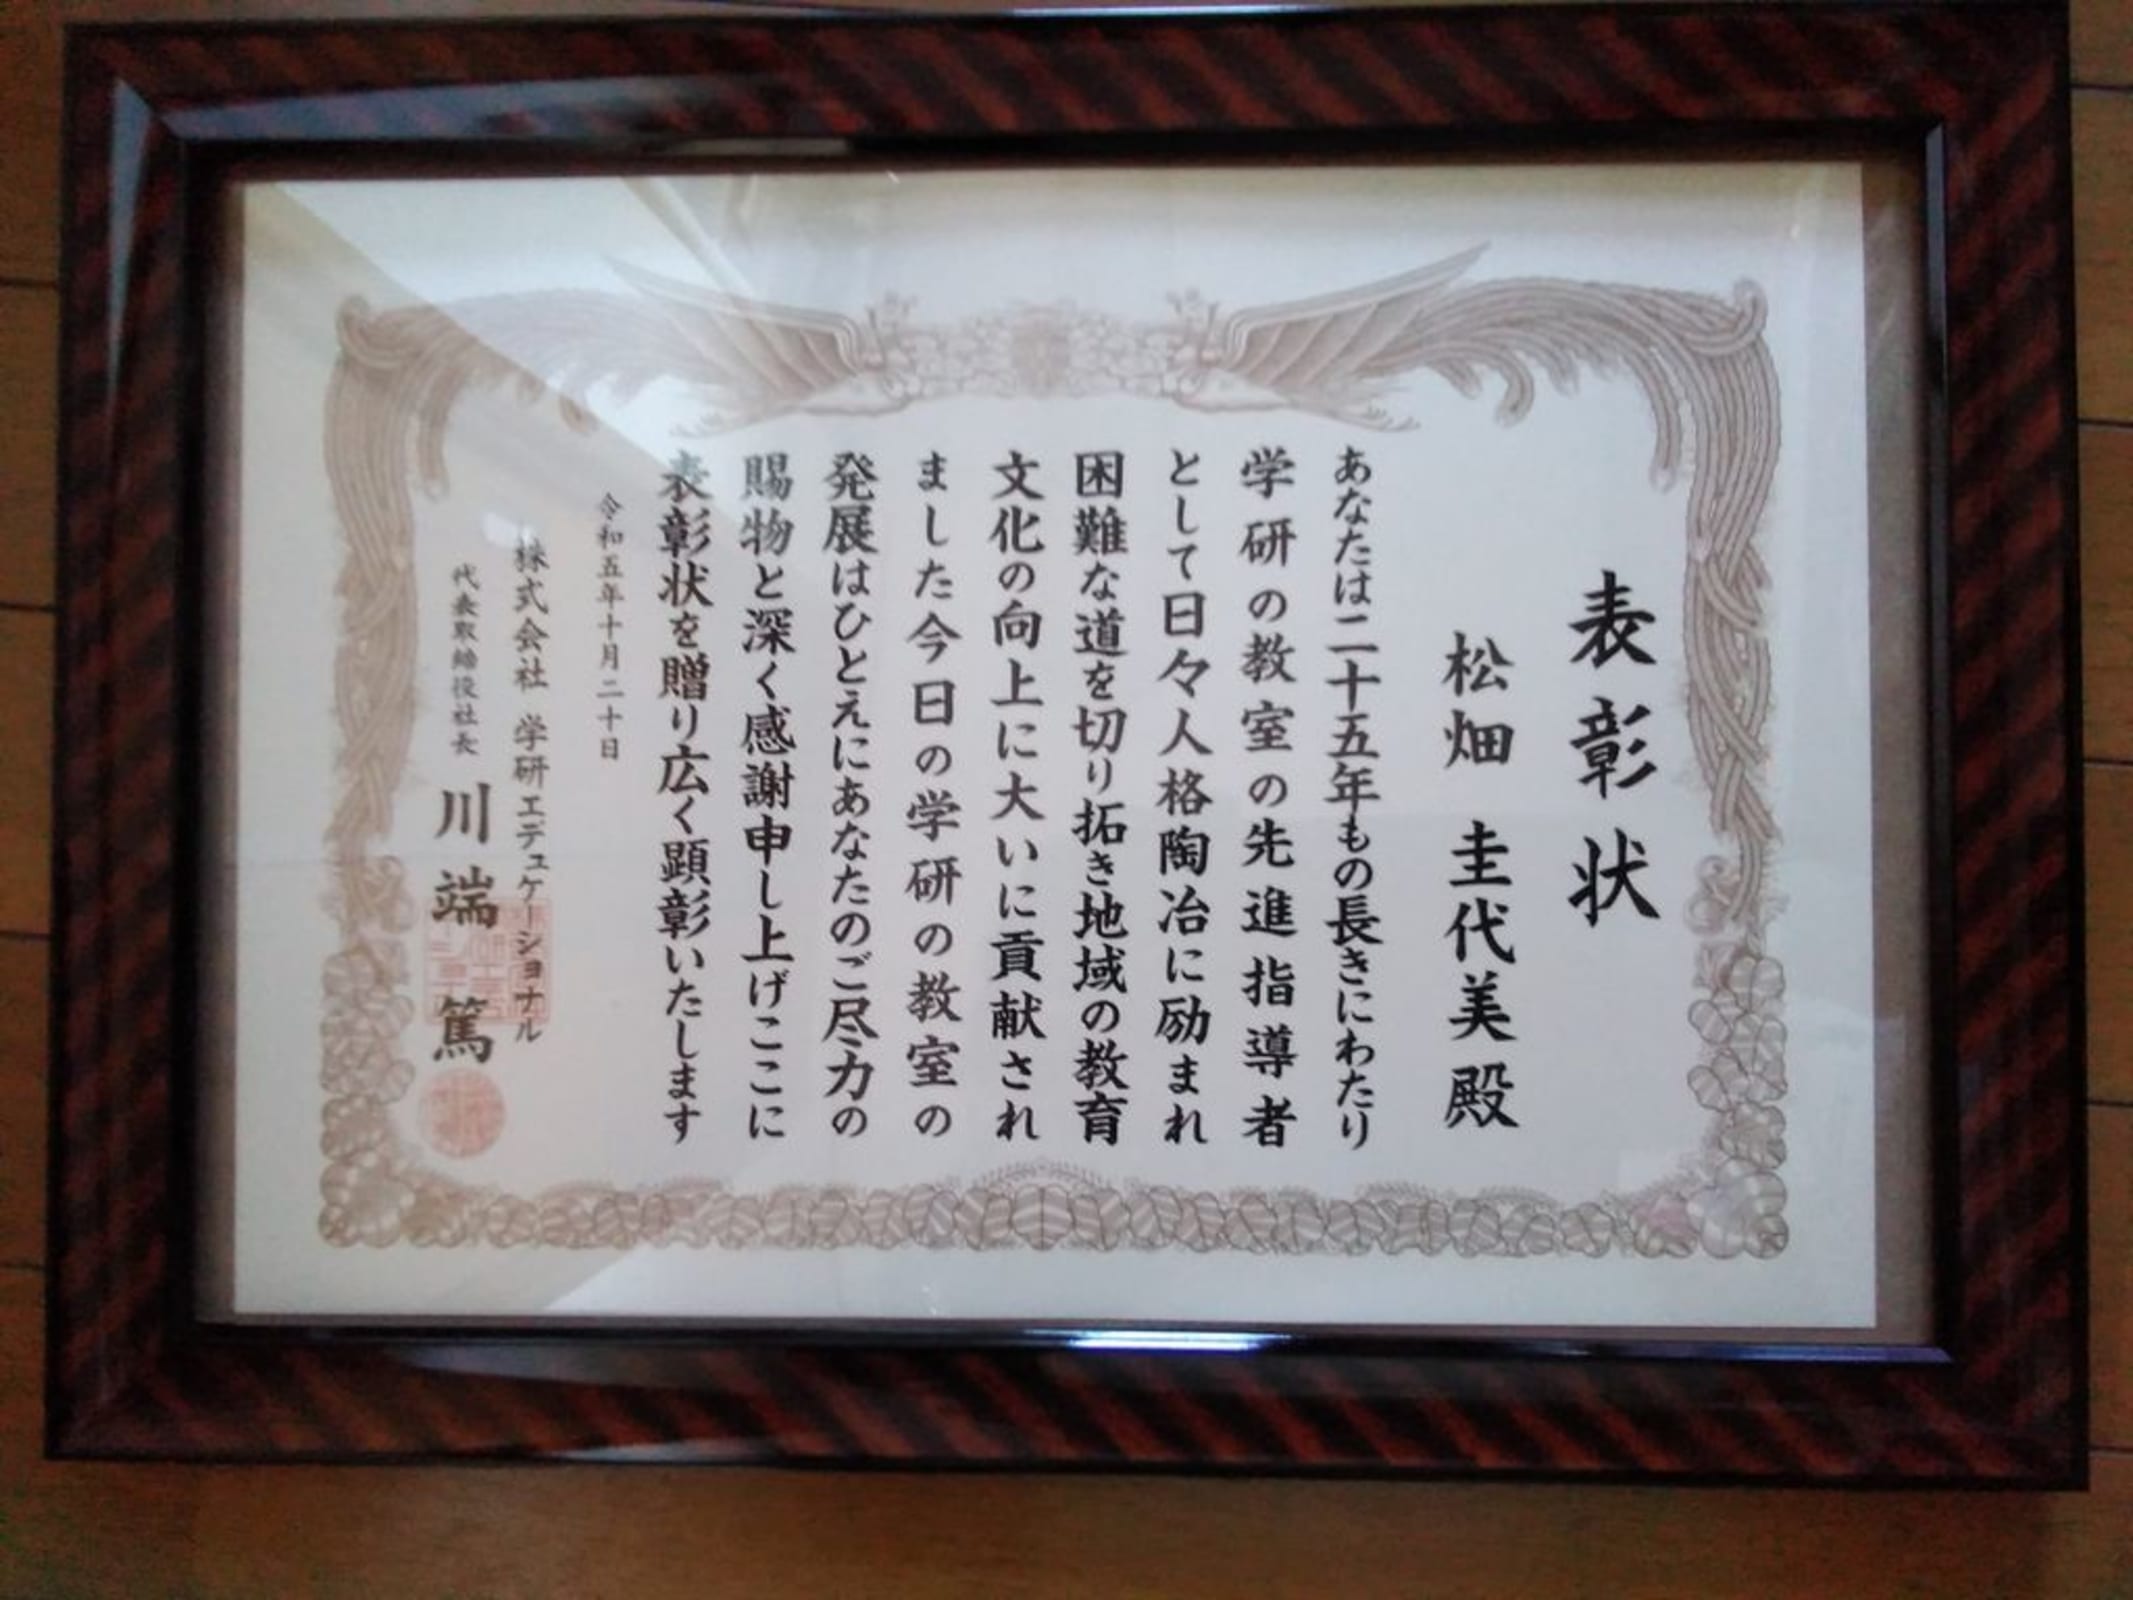 表彰状
松畑 圭代美 殿
あなたは二十五年もの長きにわたり
学研の教室の先進指導者
として日々人格陶冶に励まれ
困難な道を切り拓き地域の教育
文化の向上に大いに貢献され
ました今日の学研の教室の
発展はひとえにあなたのご尽力の
賜物と深く感謝申し上げここに
表彰状を贈り広く顕彰いたします
令和五年十月二十日
株式会社 学研エデュケーショナル
代表取締役社長 川端 篤